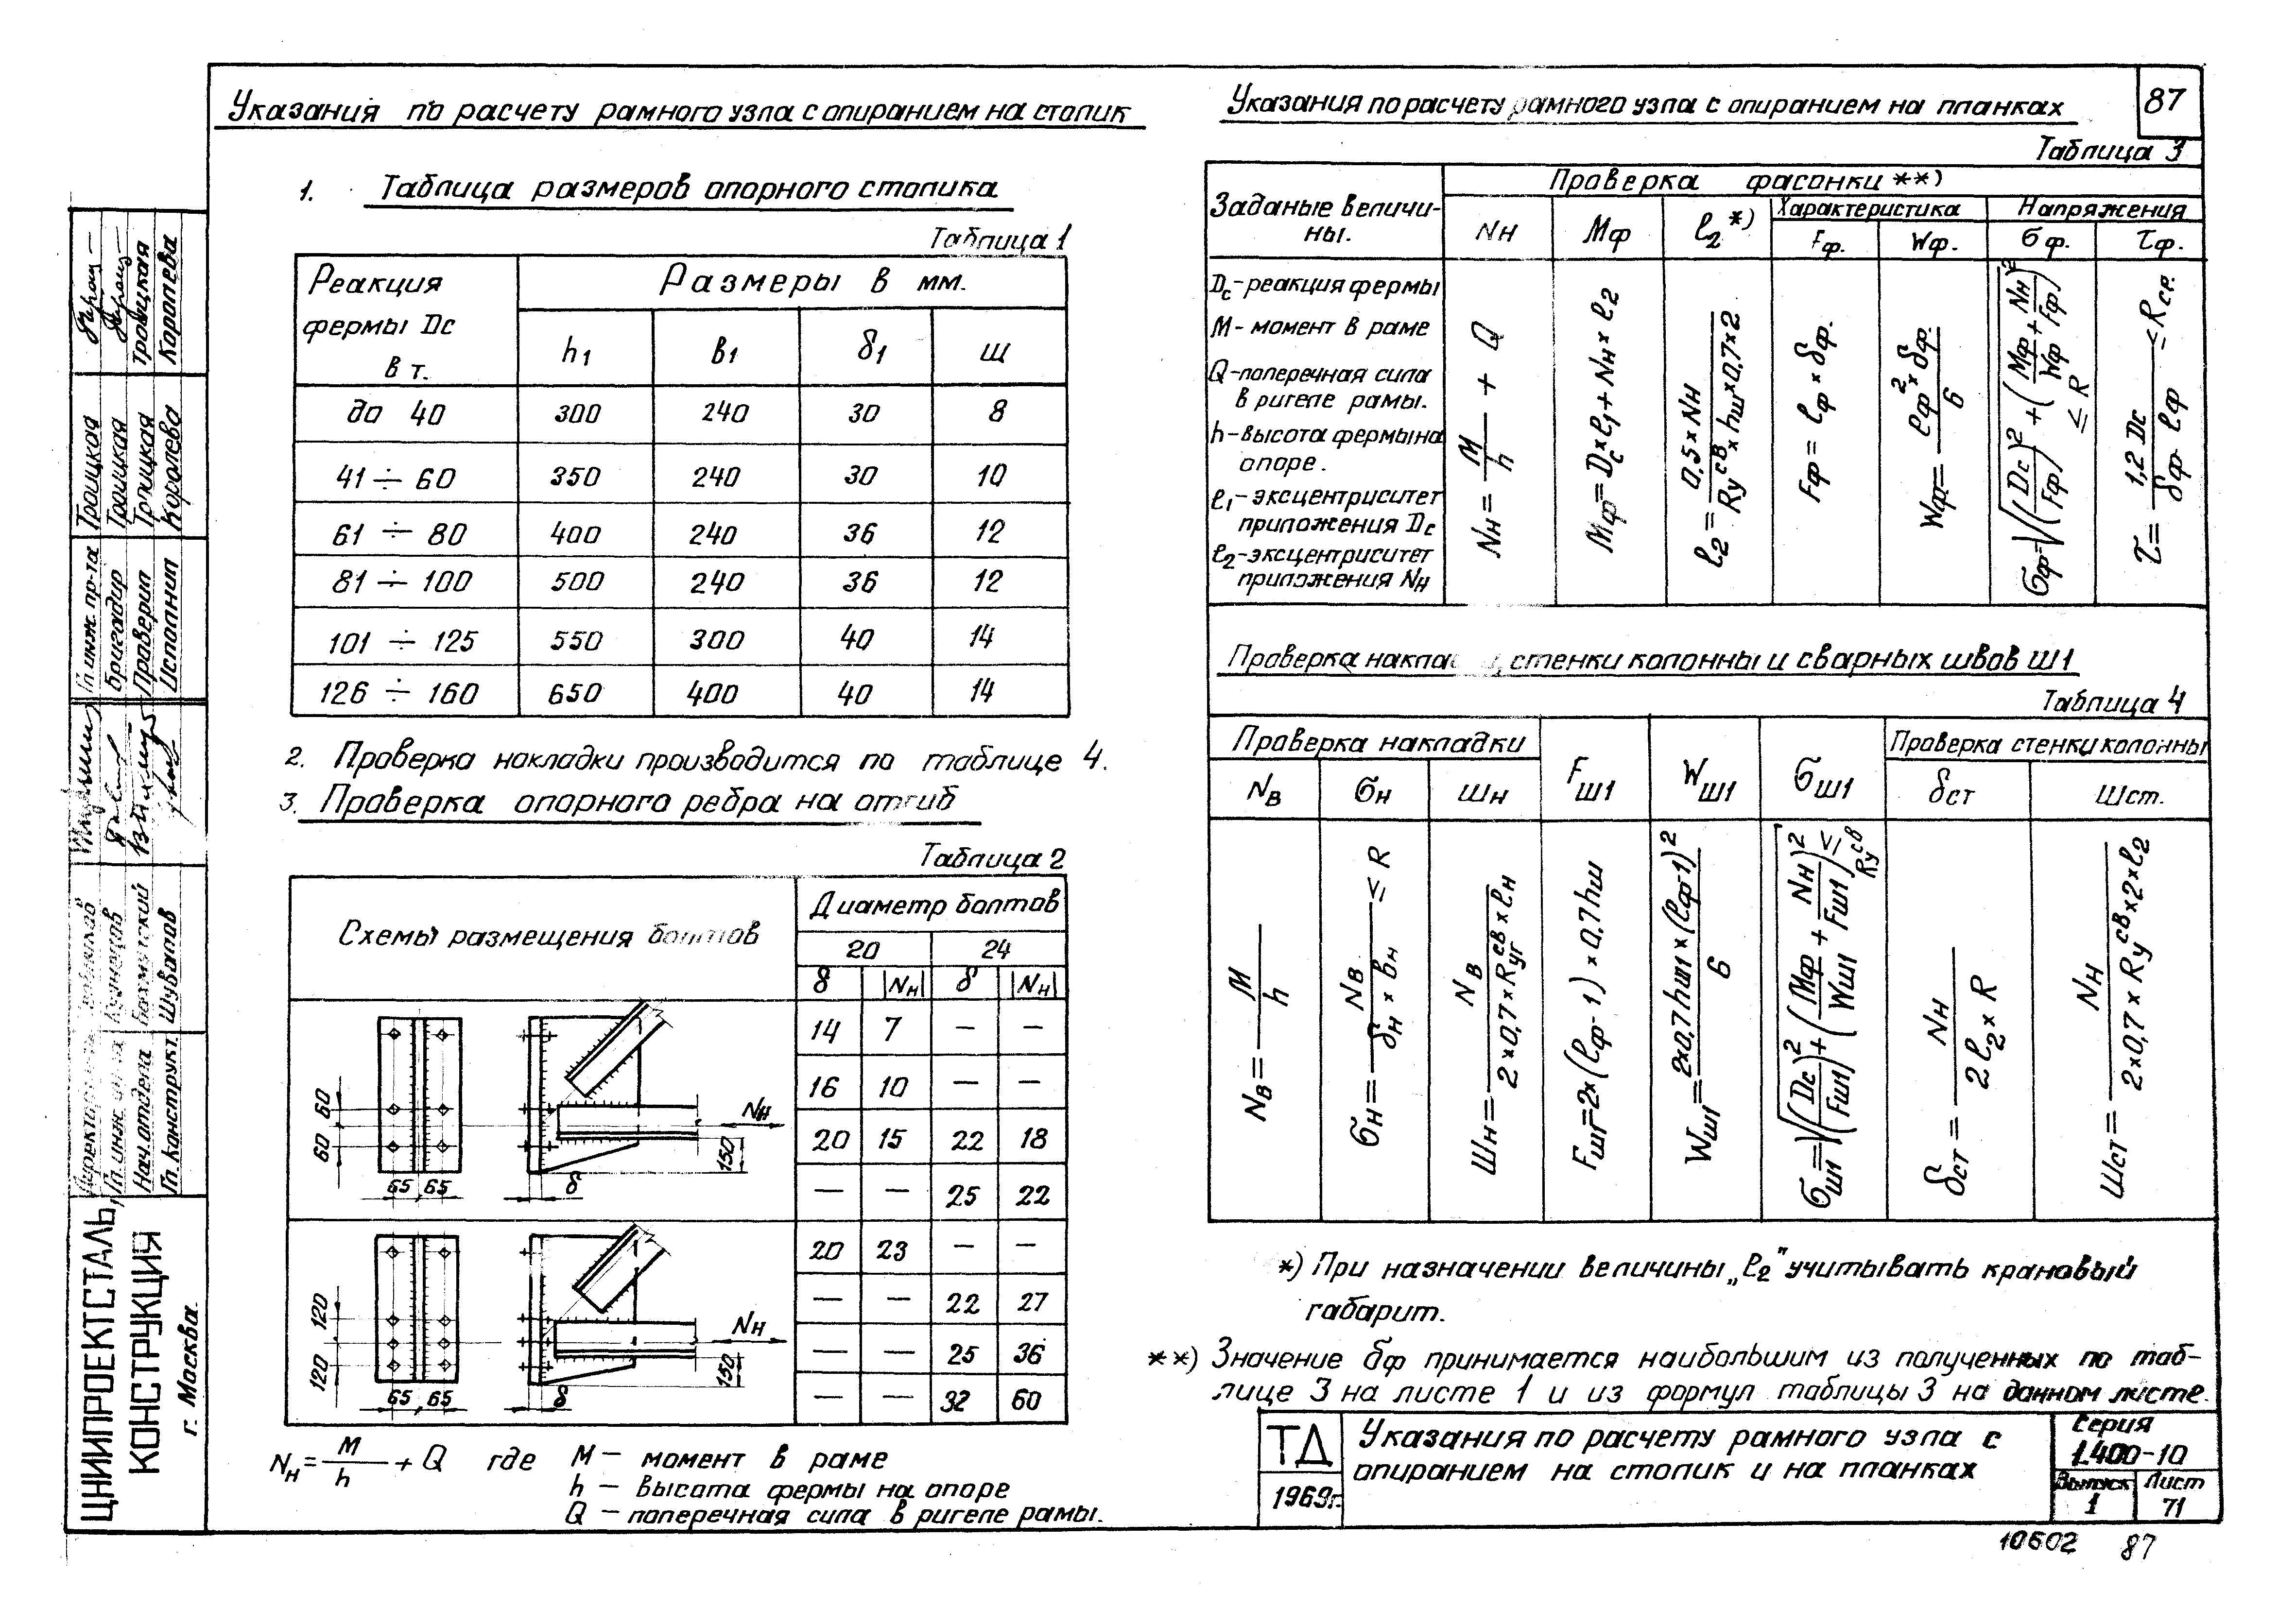 Указания по расчету рамного узла с опиранием на столик
1. Таблица размеров опорного столика
Таблица 1
Реакция фермы Dс в т.
Размеры в мм.
h1 в1 δ1 ш
до 40 300 240 30 8
41 ÷ 60 350 240 30 10
61 ÷ 80 400 240 36 12
81 ÷ 100 500 240 36 12
101 ÷ 125 550 300 40 14
126 ÷ 160 650 400 40 14
2. Проверка накладки производится по таблице 4.
3. Проверка опорного ребра на отгиб
Таблица 2
Схемы размещения болтов
Диаметр болтов
20 24
δ |Nн| δ |Nн|
14 7 — —
16 10 — —
20 15 22 18
— — 25 22
20 23 — —
— — 22 27
— — 25 36
— — 32 60
60 60 65 65 δ 150 Nн
120 120 65 65 δ 150 Nн
Nн = M/h + Q где M — момент в раме
h — высота фермы на опоре
Q — поперечная сила в ригеле рамы.
Указания по расчету рамного узла с опиранием на планках
87
Таблица 3
Заданые величины.
Проверка фасонки **)
Nн Mф ℓ2 *)
Характеристика
Напряжения
Fф. Wф. σф. τф.
Dс - реакция фермы
M - момент в раме
Q - поперечная сила
в ригеле рамы.
h - высота фермы на
опоре.
ℓ1 - эксцентриситет
приложения Dс
ℓ2 - эксцентриситет
приложения Nн
Nн = M/h + Q
Mф = Dс×ℓ1 + Nн×ℓ2
ℓ2 = 0,5×Nн / Rусв×hш×0,7×2
Fф = ℓф × δф.
Wф = ℓф²×δф. / 6
σф = √((Dс/Fф)² + (Mф/Wф + Nн/Fф)²) ≤ R
τ = 1,2 Dс / δф ℓф ≤ Rср.
Проверка стенки колонны и сварных швов Ш1
Таблица 4
Проверка накладки
Nв σн шн
Fш1 Wш1 σш1
Проверка стенки колонны
δст шст.
Nв = M/h
σн = Nв / δн × вн ≤ R
шн = Nв / 2×0,7×Rугсв×ℓн
Fш1 = 2×(ℓф-1)×0,7hш
Wш1 = 2×0,7hш1×(ℓф-1)² / 6
σш1 = √((Dс/Fш1)² + (Mф/Wш1 + Nн/Fш1)²) ≤ Rусв
δст = Nн / 2ℓ2×R
шст = Nн / 2×0,7×Rусв×2×ℓ2
*) При назначении величины „ℓ2" учитывать крановый
габарит.
**) Значение δф принимается наибольшим из полученных по таб-
лице 3 на листе 1 и из формул таблицы 3 на данном листе.
ТД
1969г.
Указания по расчету рамного узла с
опиранием на столик и на планках
Серия
1.400-10
Выпуск 1
Лист 71
10602 87
ЦНИИПРОЕКТСТАЛЬ
КОНСТРУКЦИЯ
г. Москва.
Нач. отдела
Гл. конструкт.
Бахмутский
Шувалов
Гл. инж. пр-та Троицкая
Бригадир Троицкая
Проверил Троицкая Троицкая
Исполнил Королева Королева